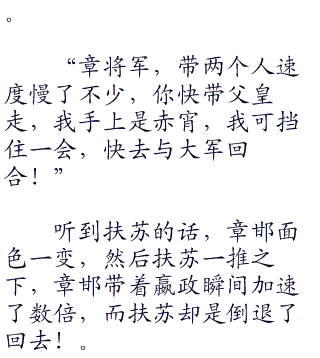 。
“章将军，带两个人速
度慢了不少，你快带父皇
走，我手上是赤宵，我可挡
住一会，快去与大军回
合！”
听到扶苏的话，章邯面
色一变，然后扶苏一推之
下，章邯带着嬴政瞬间加速
了数倍，而扶苏却是倒退了
回去！。